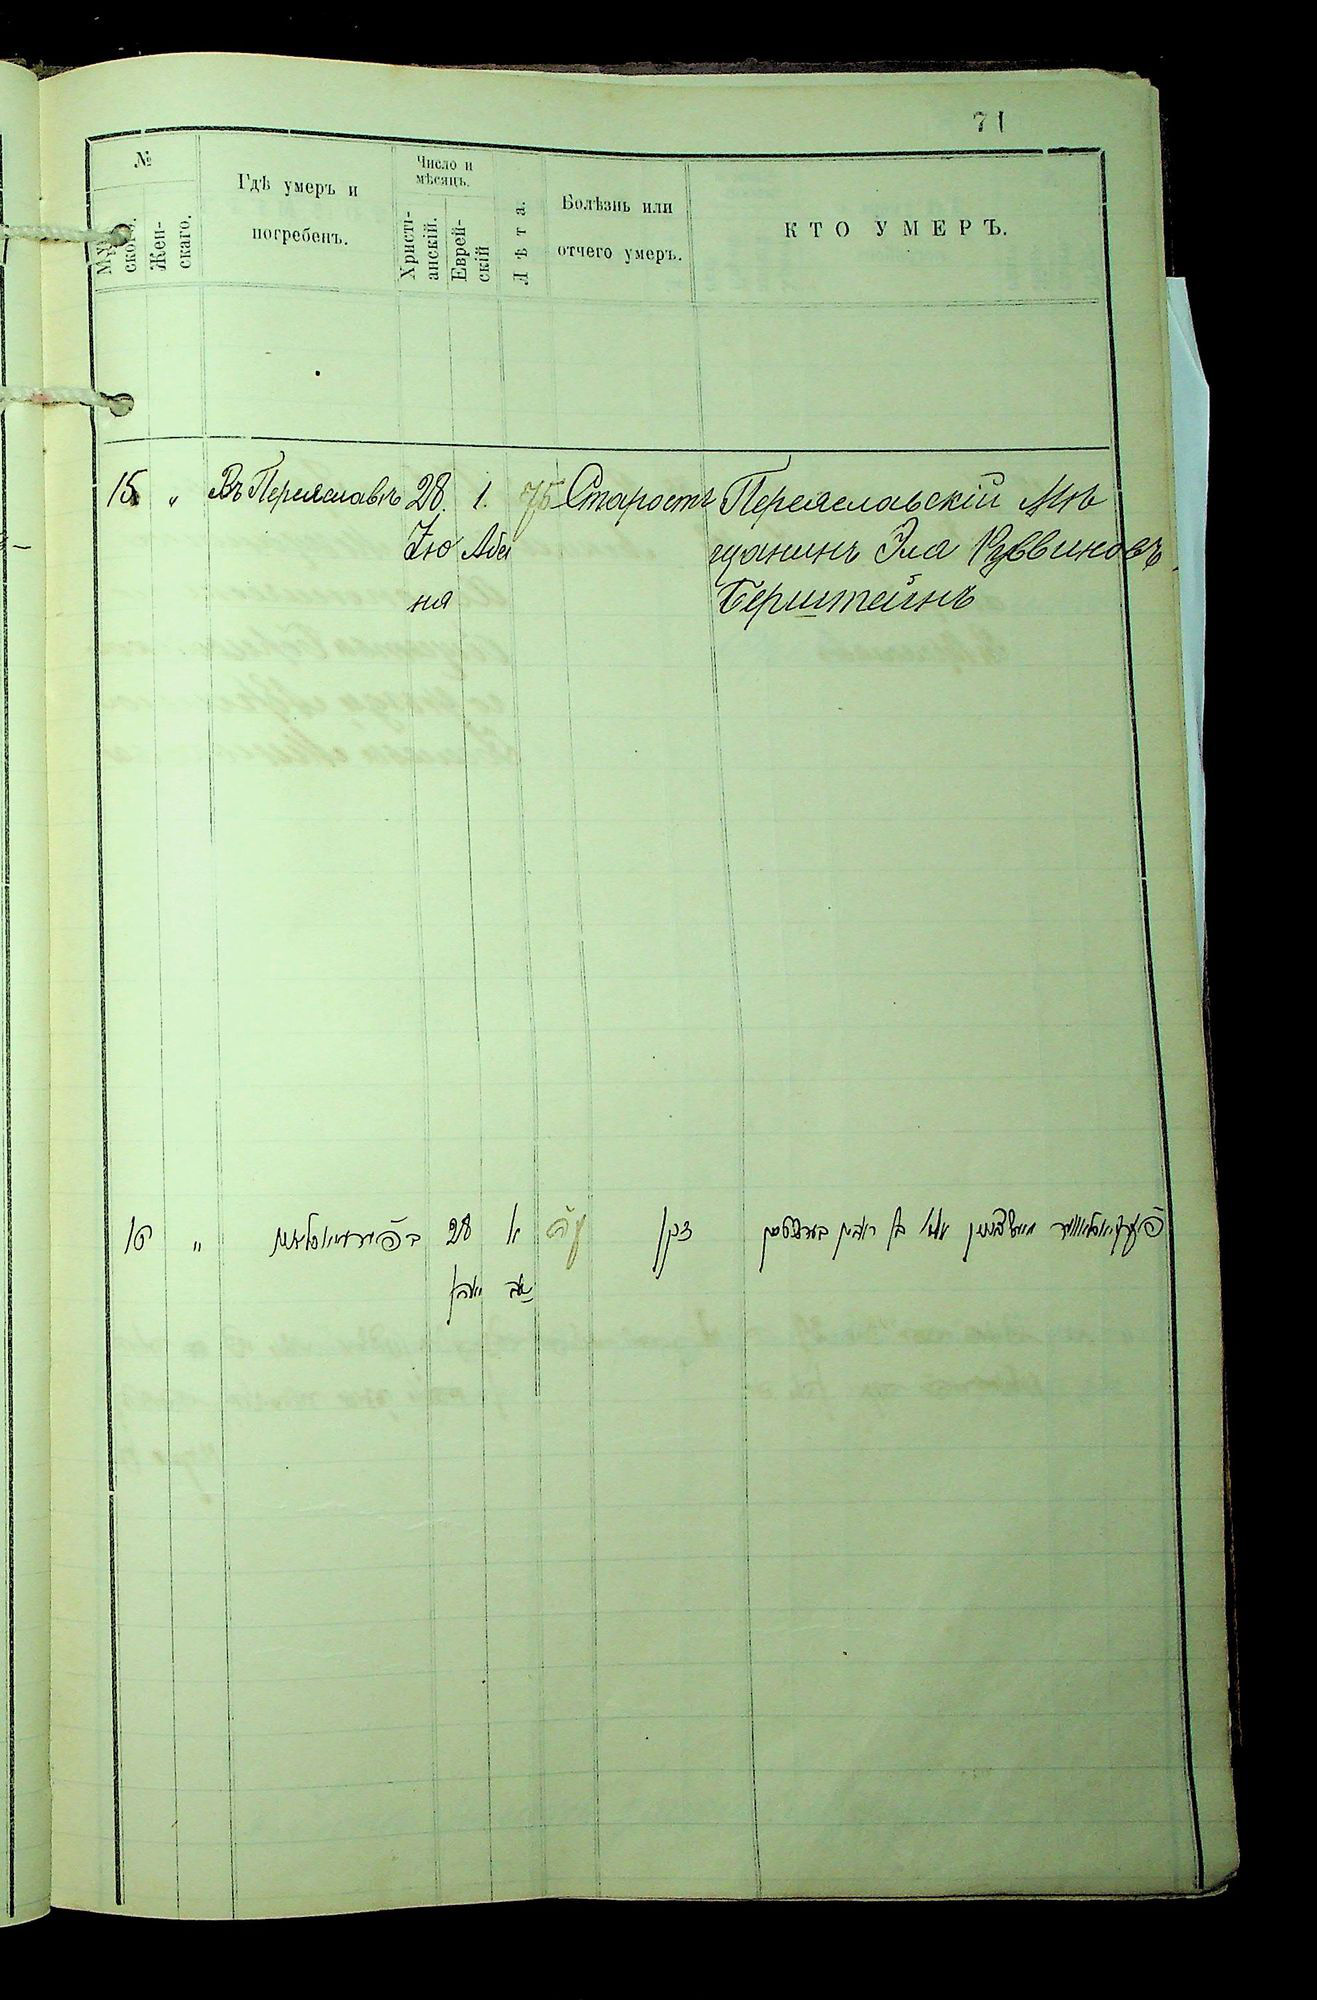 71
№
Мужского.
Женскаго.
Гдѣ умеръ и
погребенъ.
Число и
мѣсяцъ.
Христіанскій.
Еврейскій
Лѣта.
Болѣзнь или
отчего умеръ.
КТО УМЕРЪ.
15 " Въ Переяславѣ 28. 1. 75 Старость Переяславскій мѣ
Ію Аба щанинъ Эла Рувиновъ
ня Берштейнъ
" 28 א עה זקן בן ראובין
יוני אב